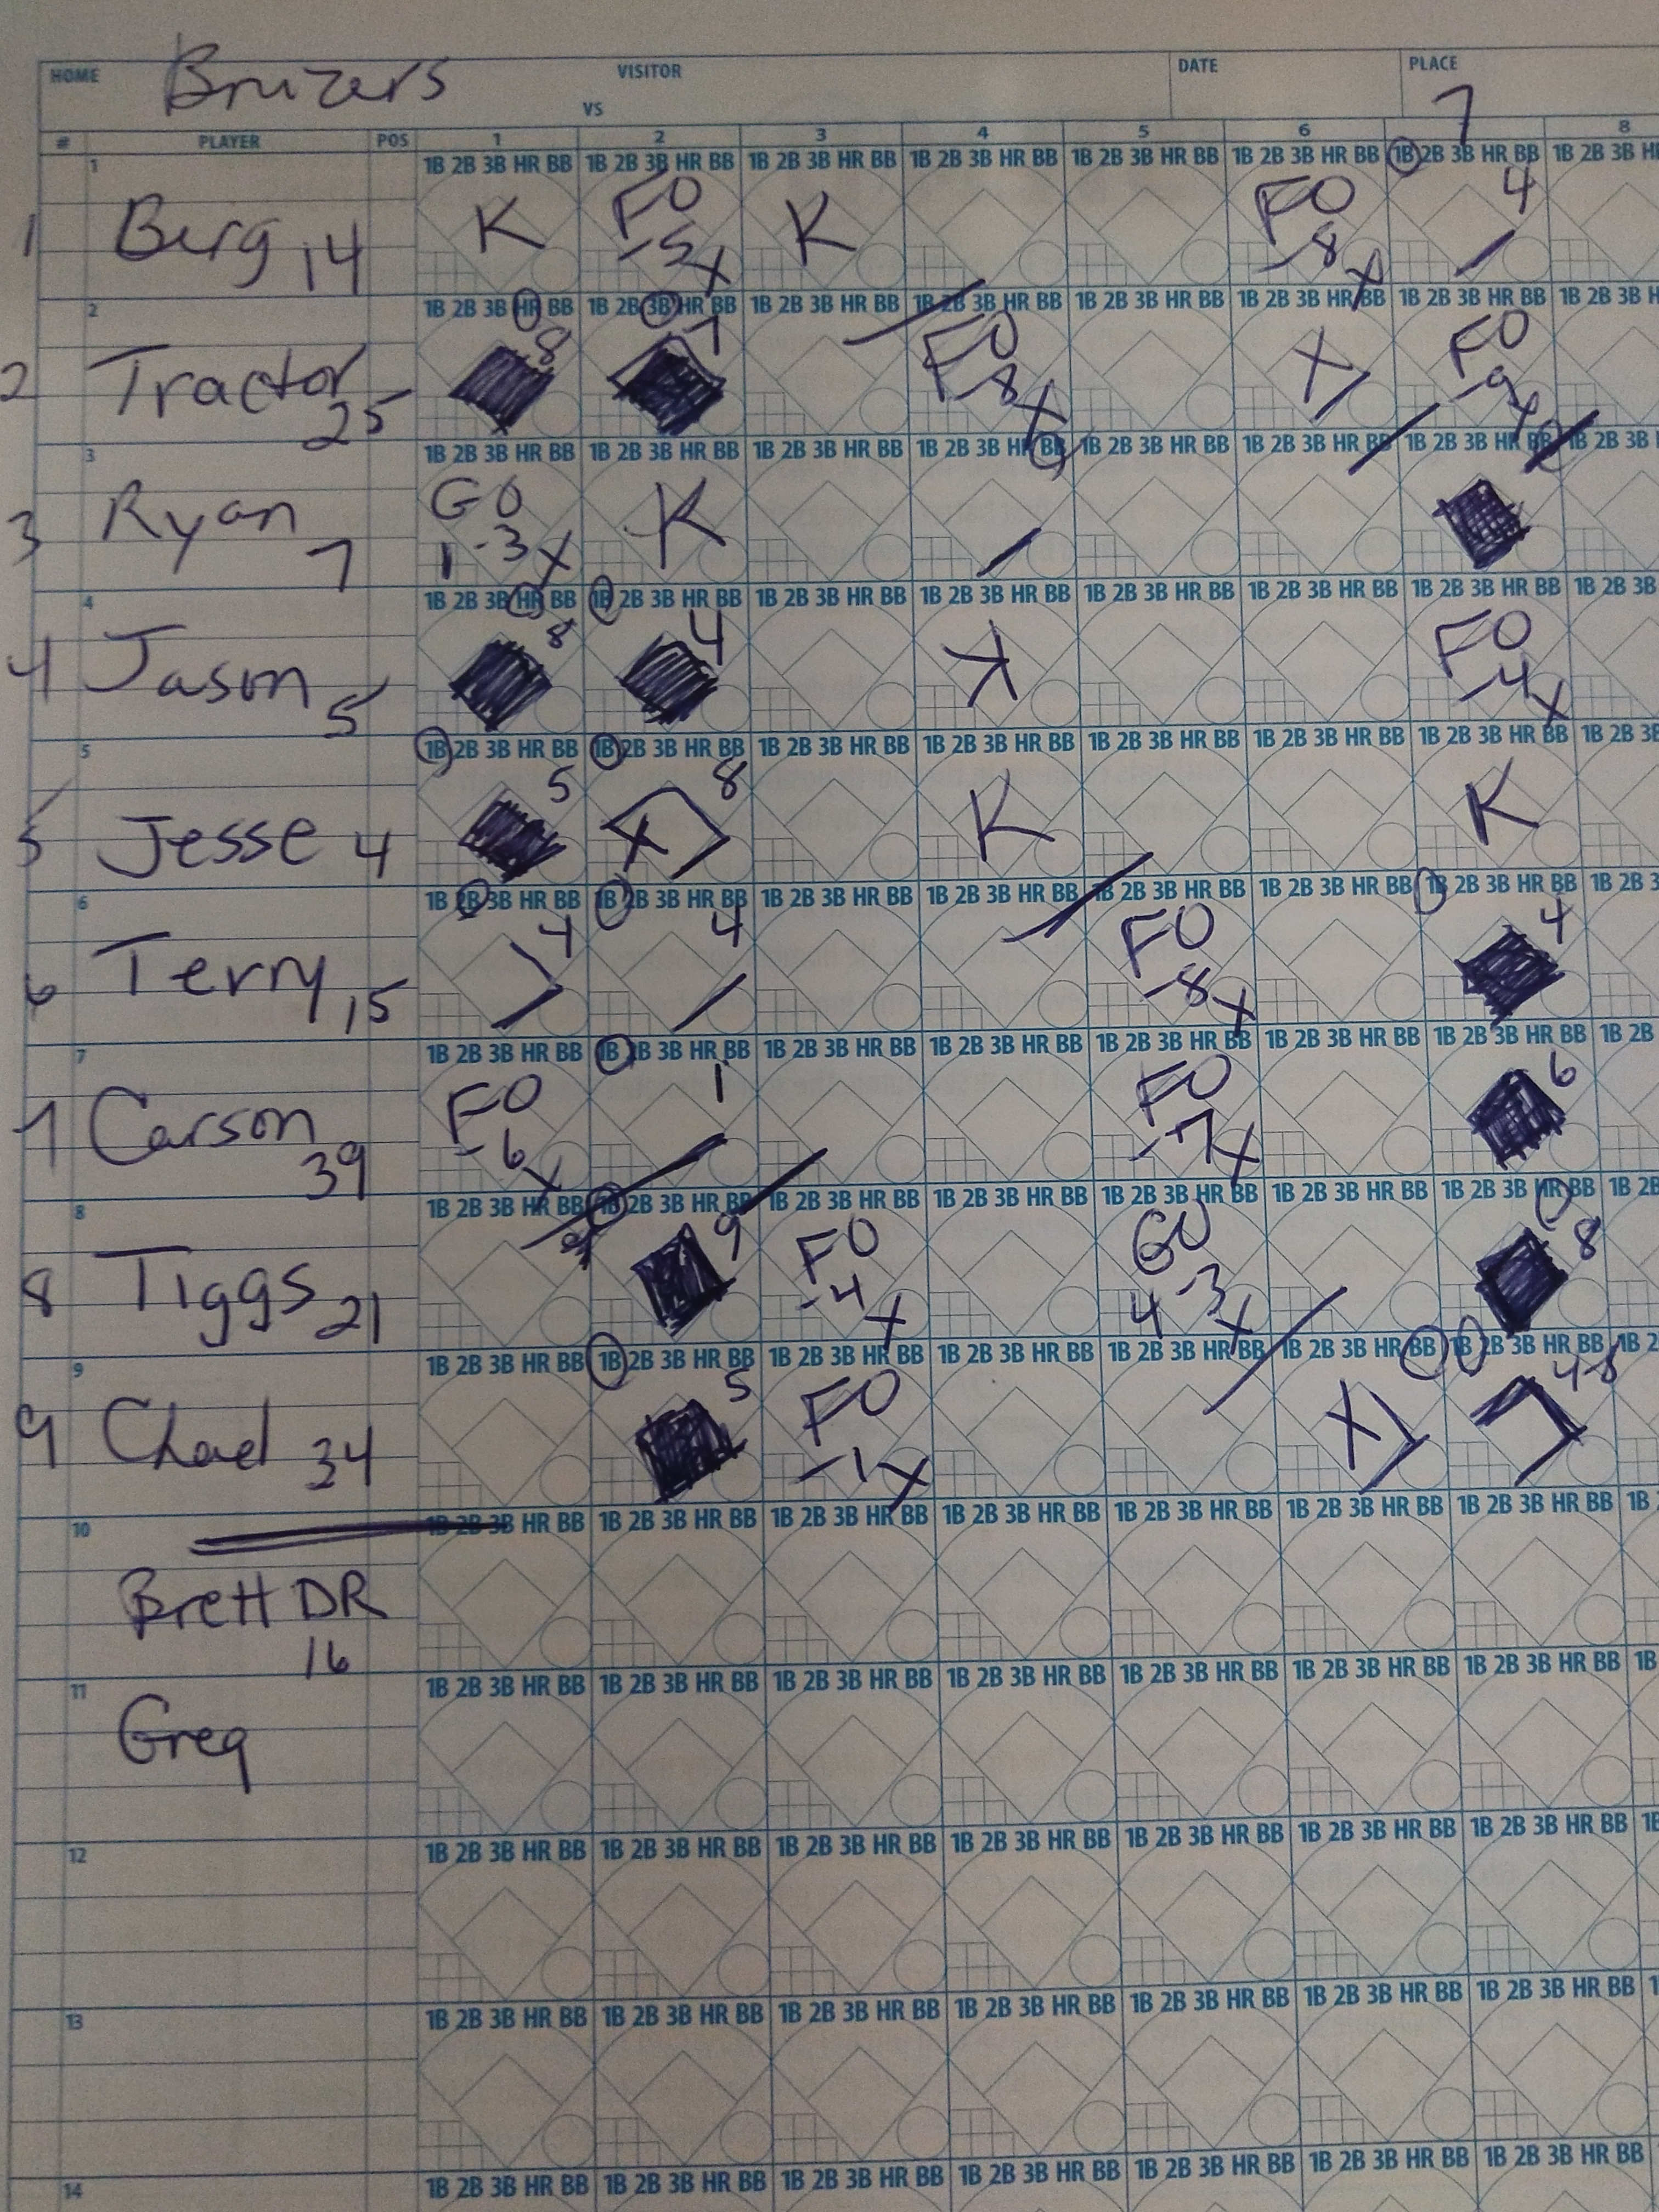 HOME Bruzers VISITOR DATE PLACE
VS 7
# PLAYER POS 1 2 3 4 5 6 8
1 1B 2B 3B HR BB 1B 2B 3B HR BB 1B 2B 3B HR BB 1B 2B 3B HR BB 1B 2B 3B HR BB 1B 2B 3B HR BB 1B 2B 3B HR BB 1B 2B 3B HR
K FO K FO 4
1 Berg 14 -5 X -8 X
2 1B 2B 3B HR BB 1B 2B 3B HR BB 1B 2B 3B HR BB 1B 2B 3B HR BB 1B 2B 3B HR BB 1B 2B 3B HR BB 1B 2B 3B HR BB 1B 2B 3B H
8 7 FO X FO
2 Tractor 25 -8 X -9 X
3 1B 2B 3B HR BB 1B 2B 3B HR BB 1B 2B 3B HR BB 1B 2B 3B HR BB 1B 2B 3B HR BB 1B 2B 3B HR BB 1B 2B 3B HR BB 1B 2B 3B
GO K
3 Ryan 7 1-3 X
4 1B 2B 3B HR BB 1B 2B 3B HR BB 1B 2B 3B HR BB 1B 2B 3B HR BB 1B 2B 3B HR BB 1B 2B 3B HR BB 1B 2B 3B HR BB 1B 2B 3B
8 4 K FO
4 Jason 5 -4 X
5 1B 2B 3B HR BB 1B 2B 3B HR BB 1B 2B 3B HR BB 1B 2B 3B HR BB 1B 2B 3B HR BB 1B 2B 3B HR BB 1B 2B 3B HR BB 1B 2B 3B
5 8 K K
5 Jesse 4 X
6 1B 2B 3B HR BB 1B 2B 3B HR BB 1B 2B 3B HR BB 1B 2B 3B HR BB 1B 2B 3B HR BB 1B 2B 3B HR BB 1B 2B 3B HR BB 1B 2B 3
4 4 FO 4
6 Terry 15 -8 X
7 1B 2B 3B HR BB 1B 2B 3B HR BB 1B 2B 3B HR BB 1B 2B 3B HR BB 1B 2B 3B HR BB 1B 2B 3B HR BB 1B 2B 3B HR BB 1B 2B
FO 1 FO 6
7 Carson 39 -6 X -7 X
8 1B 2B 3B HR BB 1B 2B 3B HR BB 1B 2B 3B HR BB 1B 2B 3B HR BB 1B 2B 3B HR BB 1B 2B 3B HR BB 1B 2B 3B HR BB 1B 2B
9 FO GO 8
8 Tiggs 21 -4 X 4-3 X
9 1B 2B 3B HR BB 1B 2B 3B HR BB 1B 2B 3B HR BB 1B 2B 3B HR BB 1B 2B 3B HR BB 1B 2B 3B HR BB 1B 2B 3B HR BB 1B 2
5 FO X 4-8
9 Chad 34 -1 X
10 1B 2B 3B HR BB 1B 2B 3B HR BB 1B 2B 3B HR BB 1B 2B 3B HR BB 1B 2B 3B HR BB 1B 2B 3B HR BB 1B 2B 3B HR BB 1B
Brett DR
16
11 1B 2B 3B HR BB 1B 2B 3B HR BB 1B 2B 3B HR BB 1B 2B 3B HR BB 1B 2B 3B HR BB 1B 2B 3B HR BB 1B 2B 3B HR BB 1B
Greg
12 1B 2B 3B HR BB 1B 2B 3B HR BB 1B 2B 3B HR BB 1B 2B 3B HR BB 1B 2B 3B HR BB 1B 2B 3B HR BB 1B 2B 3B HR BB 1B
13 1B 2B 3B HR BB 1B 2B 3B HR BB 1B 2B 3B HR BB 1B 2B 3B HR BB 1B 2B 3B HR BB 1B 2B 3B HR BB 1B 2B 3B HR BB
14 1B 2B 3B HR BB 1B 2B 3B HR BB 1B 2B 3B HR BB 1B 2B 3B HR BB 1B 2B 3B HR BB 1B 2B 3B HR BB 1B 2B 3B HR BB